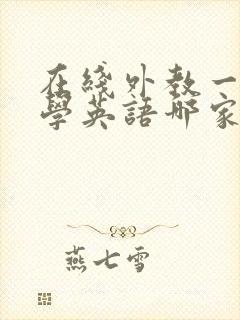 在綫外教一
學英語哪家
燕七雪